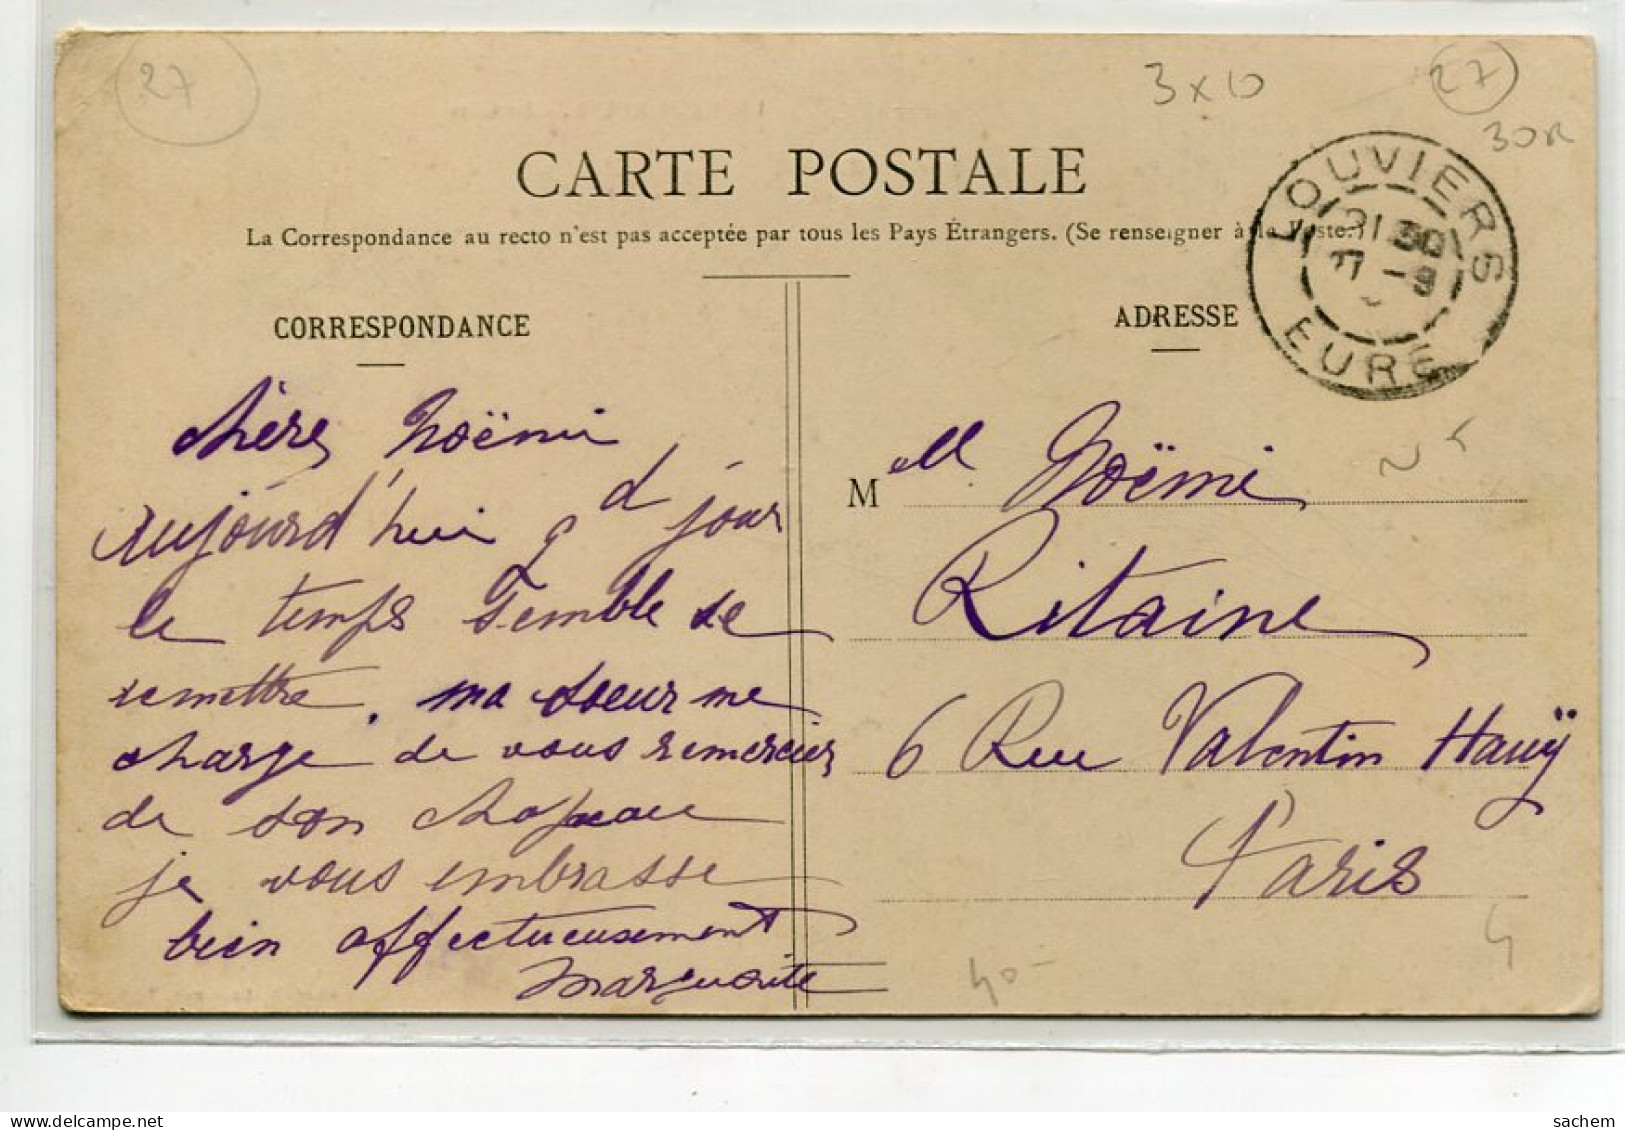 27
3 x 10
27
30R
CARTE POSTALE
La Correspondance au recto n'est pas acceptée par tous les Pays Étrangers. (Se renseigner à la Poste.)
LOUVIERS
21 30
27 -9
EURE
CORRESPONDANCE
chère Noëmi
Aujourd'hui gd jour
le temps semble se
remettre. ma soeur me
charge de vous remercier
de son chapeau
je vous embrasse
bien affectueusement
Marguerite
ADRESSE
Melle Noëmi
Ritaine
6 Rue Valentin Haüy
Paris
40-
4
sachem